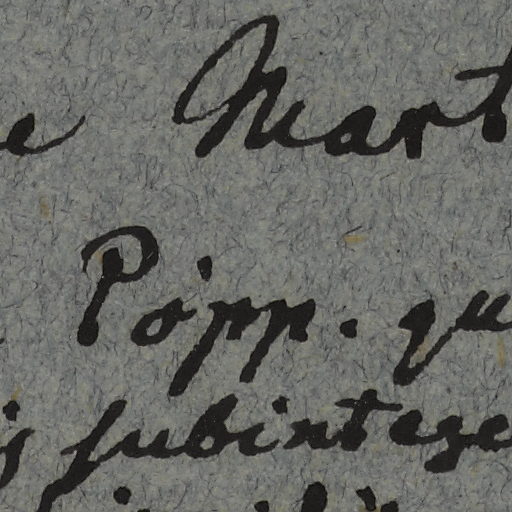 e Mart
Pöpp. qu
subintege